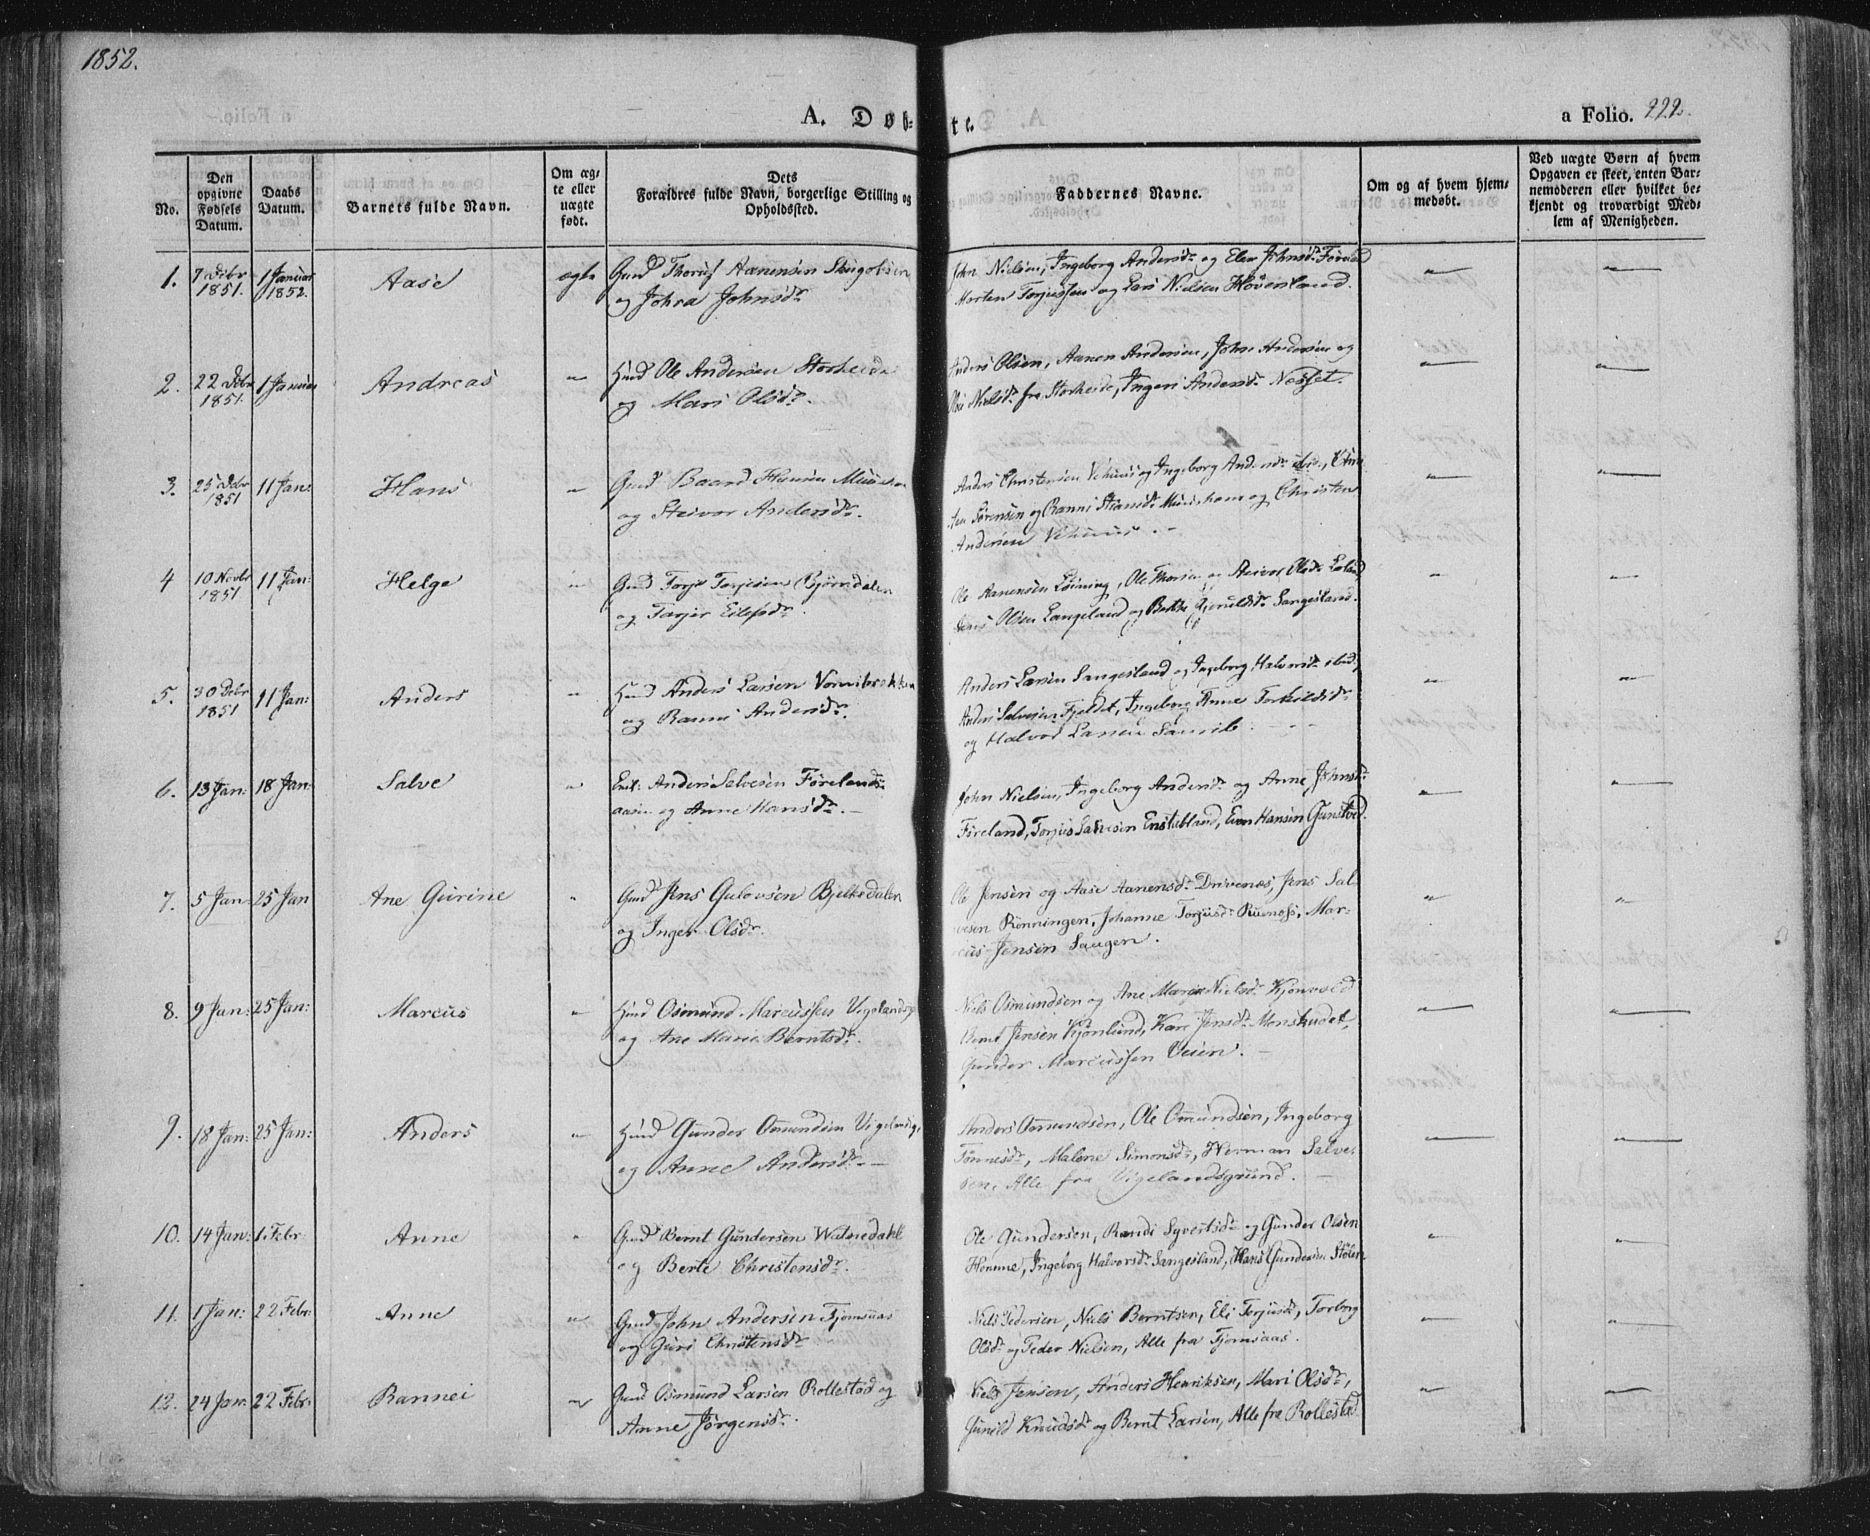 1852.
A. Døb-
te.
a Folio. 222.
No.
Den
opgivne
Fødsels
Datum.
Daabs
Datum.
Barnets fulde Navn.
Om æg-
te eller
uægte
født.
Dets
Forældres fulde Navn, borgerlige Stilling og
Opholdssted.
Faddernes Navne.
Om og af hvem hjem-
medøbt.
Ved uægte Børn af hvem
Opgaven er skeet, enten Bar-
nemoderen eller hvilket be-
kjendt og troværdigt Med-
lem af Menigheden.
1. 7 Debr 1 Januar Aase ægte Gmd Aanensen
1851. 1852. og Johra Johnsdr
John Nielsen, Ingeborg Andersdr og Johnsdr
Morten Torjussen og Lars Nielsen
2. 22 Debr 1 Januar Andreas " Hmd Ole Andersen Storheide
1851. og Mari Olsdr.
Anders Olsen, Aanen Andersen, John Andersen og
Nielsdr fra Storheide, Ingeri Andersdr Nesset.
3. 25 Debr 11 Jan: Hans " Gmd Baard Hansen
1851 og Steivor Andersdr.
Anders Christensen Vehuus og Ingeborg Andersdr ibid,
Sørensen og Ranni og Christen
Andersen Vehuus. -
4 10 Novbr 11 Jan: Helge " Gmd Torje Torjesen Bjørndalen
1851 og Torjer Eilefsdr.
Ole Aanensen Løining, Ole og Steivor Olsdr
Jens Olsen Langeland og Sangesland.
5. 30 Debr 11 Jan: Anders " Hmd Anders Larsen
1851 og Ranni Andersdr.
Anders Larsen Sangesland og Ingeborg Halvorsdr ibid,
Anders Salvesen Fjeldet, Ingeborg Anne Torkildsdr
og Halvor Larsen
6. 13 Jan: 18 Jan: Salve " Anders Salvesen Førelands-
aasen og Anne Hansdr. -
John Nielsen, Ingeborg Andersdr og Anne Johnsdr
Føreland, Torjus Salvesen Enstabland, Even Hansen Gunsted.
7. 5 Jan: 25 Jan Ane Gurine " Gmd Jens Gulovsen Bjelkedalen
og Inger Olsdr.
Ole Jensen og Aase Aanensdr Drivenes, Jens Sal-
vesen Rønningen, Johanne Torjusdr Ruenæs, Mar-
cus Jensen Saugen.
8. 9 Jan: 25 Jan: Marcus " Hmd Osmund Marcussen
og Ane Marie Berntsdr.
Niels Osmundsen og Ane Marie Nielsdr
Bernt Jensen Kjønlund, Kari Jensdr Monskudet,
Gunder Marcussen Veien. -
9. 18 Jan: 25 Jan: Anders " Hmd Gunder Osmundsen
og Anne Andersdr. -
Anders Osmundsen, Ole Osmundsen, Ingeborg
Tønnesdr, Malene Simonsdr, Herman Salve-
sen, Alle fra Vigelandsgrund. -
10. 14 Jan: 1. Febr Anne " Gmd Bernt Gundersen Watnedahl
og Berte Christensdr.
Ole Gundersen, Randi Syvertsdr og Gunder Olsen
Homme, Ingeborg Halvorsdr Sangesland, Hans Gundersen Stølen
11. 1 Jan: 22 Febr: Anne " Gmd John Andersen Fjomsaas
og Guri Christensdr.
Niels Pedersen, Niels Berntsen, Eli Torjusdr, Torborg
Olsdr og Peder Nielsen, Alle fra Fjomsaas.
12. 24 Jan: 22 Febr: Rannei " Gmd Osmund Larsen Rollestad og
Anne Jørgensdr.
Niels Jensen, Anders Henriksen, Mari Olsdr,
Gunild Knudsdr og Bernt Larsen, Alle fra Rollestad